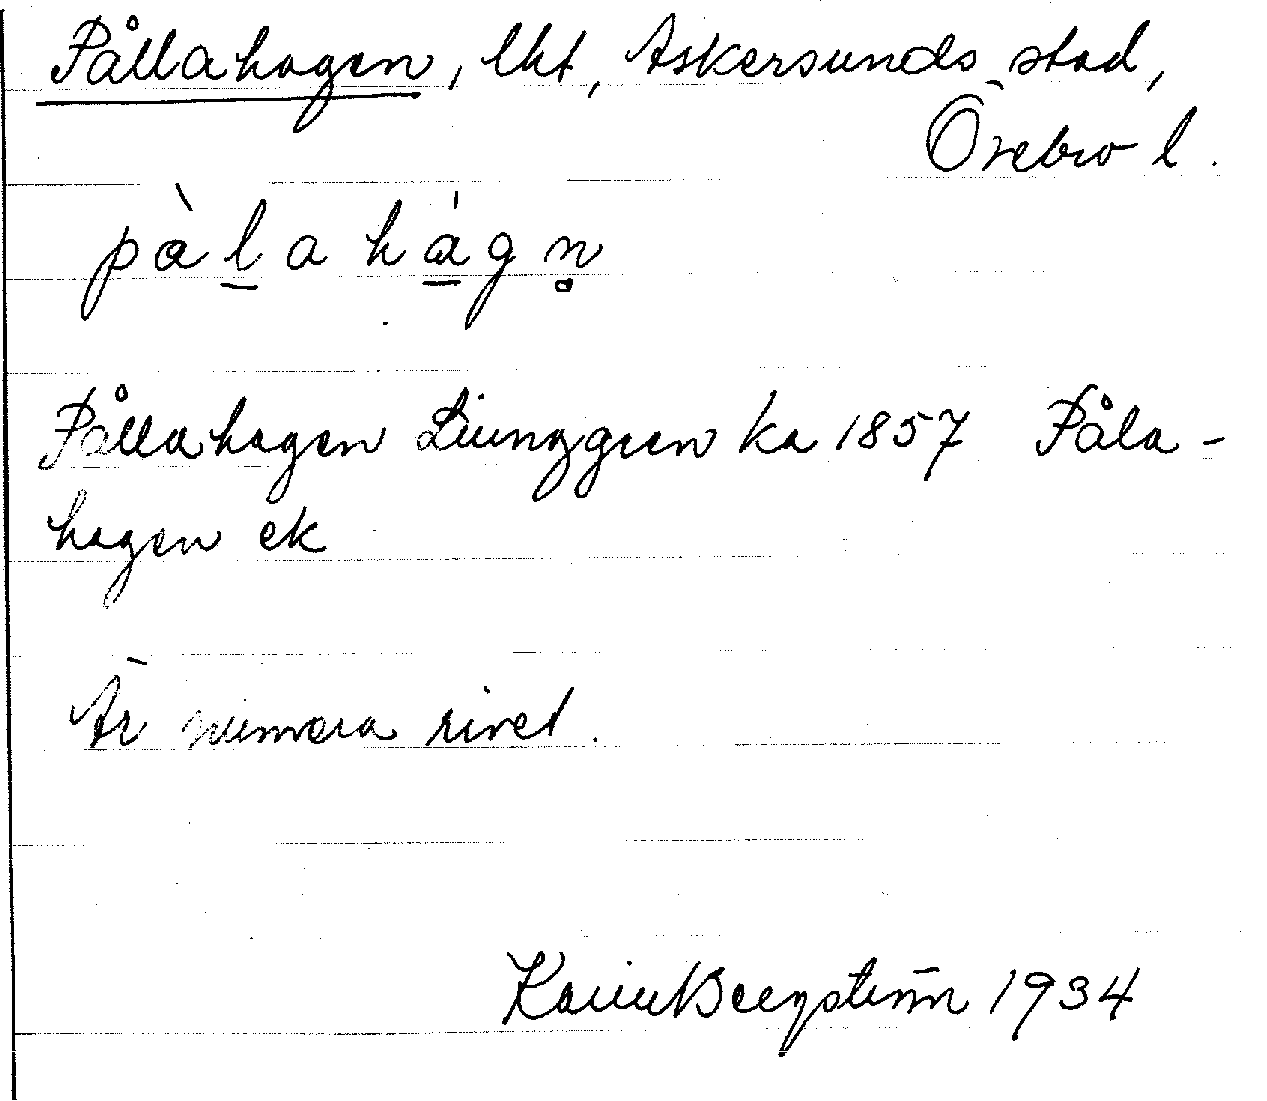 Pållahagen, lht, Askersunds stad,
Örebro l.
pàlahágn̥
Pållahagen Liunggren ka 1857 Påla-
hagen ek
Är numera rivet.
Karin Bergström 1934